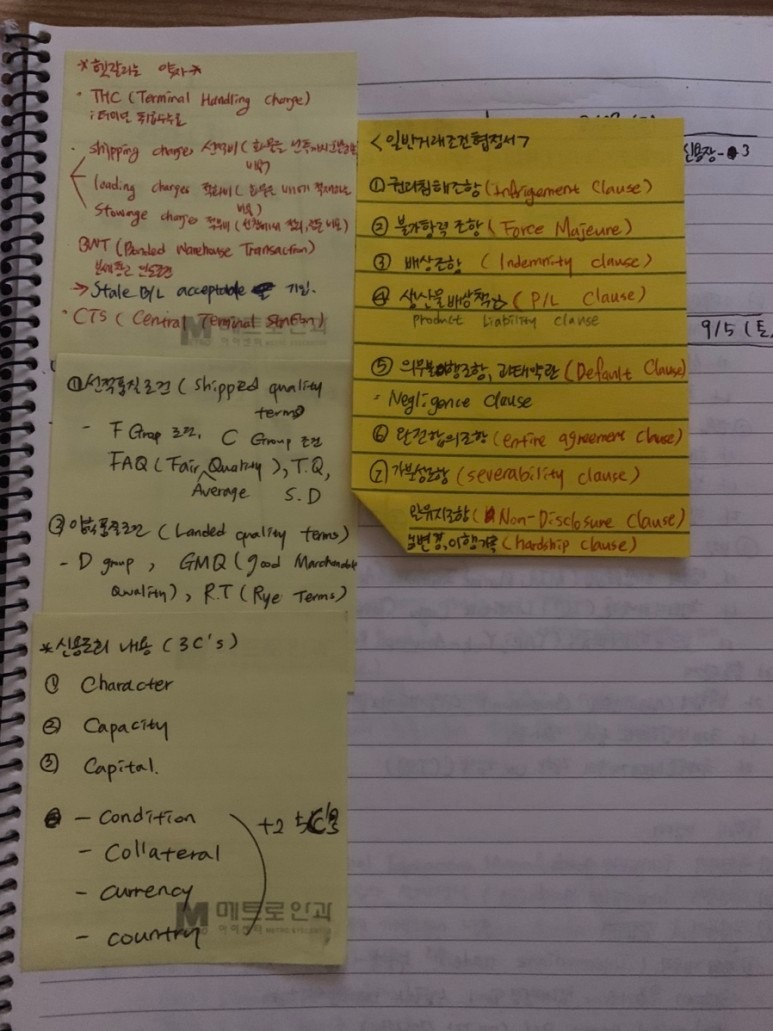 *헷갈리는 약자*
· THC (Terminal Handling Charge)
: 터미널 취급수수료
· shipping charges 선적비 (화물을
비용)
loading charges 적재비 (
비용)
Stowage charges 적부비 (선창내에서 정리,
BWT (Bonded Warehouse Transaction)
보세창고 인도조건
→ Stale B/L acceptable 기입.
· CTS ( Central Terminal Station)
① 선적품질조건 ( shipped quality
terms)
- F Group 조건, C Group 조건
FAQ (Fair Quality), T.Q,
Average S.D
② 양륙품질조건 (Landed quality terms)
- D group, GMQ (good Marchandable
Quality), R.T (Rye Terms)
*신용조회 내용 (3C's)
① Character
② Capacity
③ Capital.
- Condition
+2 5C's
- Collateral
- currency
- country
M 메트로안과
<일반거래조건협정서>
① 권리침해조항 (infrigement Clause)
② 불가항력 조항 (Force Majeure)
③ 배상조항 (Indemnity clause)
④ 생산물배상책임 (P/L Clause)
product liability clause
⑤ 의무불이행조항, 과태약관 (Default Clause)
· Negligence Clause
⑥ 완전합의조항 (entire agreement clause)
⑦ 가분성조항 (severability clause)
밀유지조항 (Non-Disclosure Clause)
변경, 이행거절 (hardship clause)
신용장-3
9/5 (토,